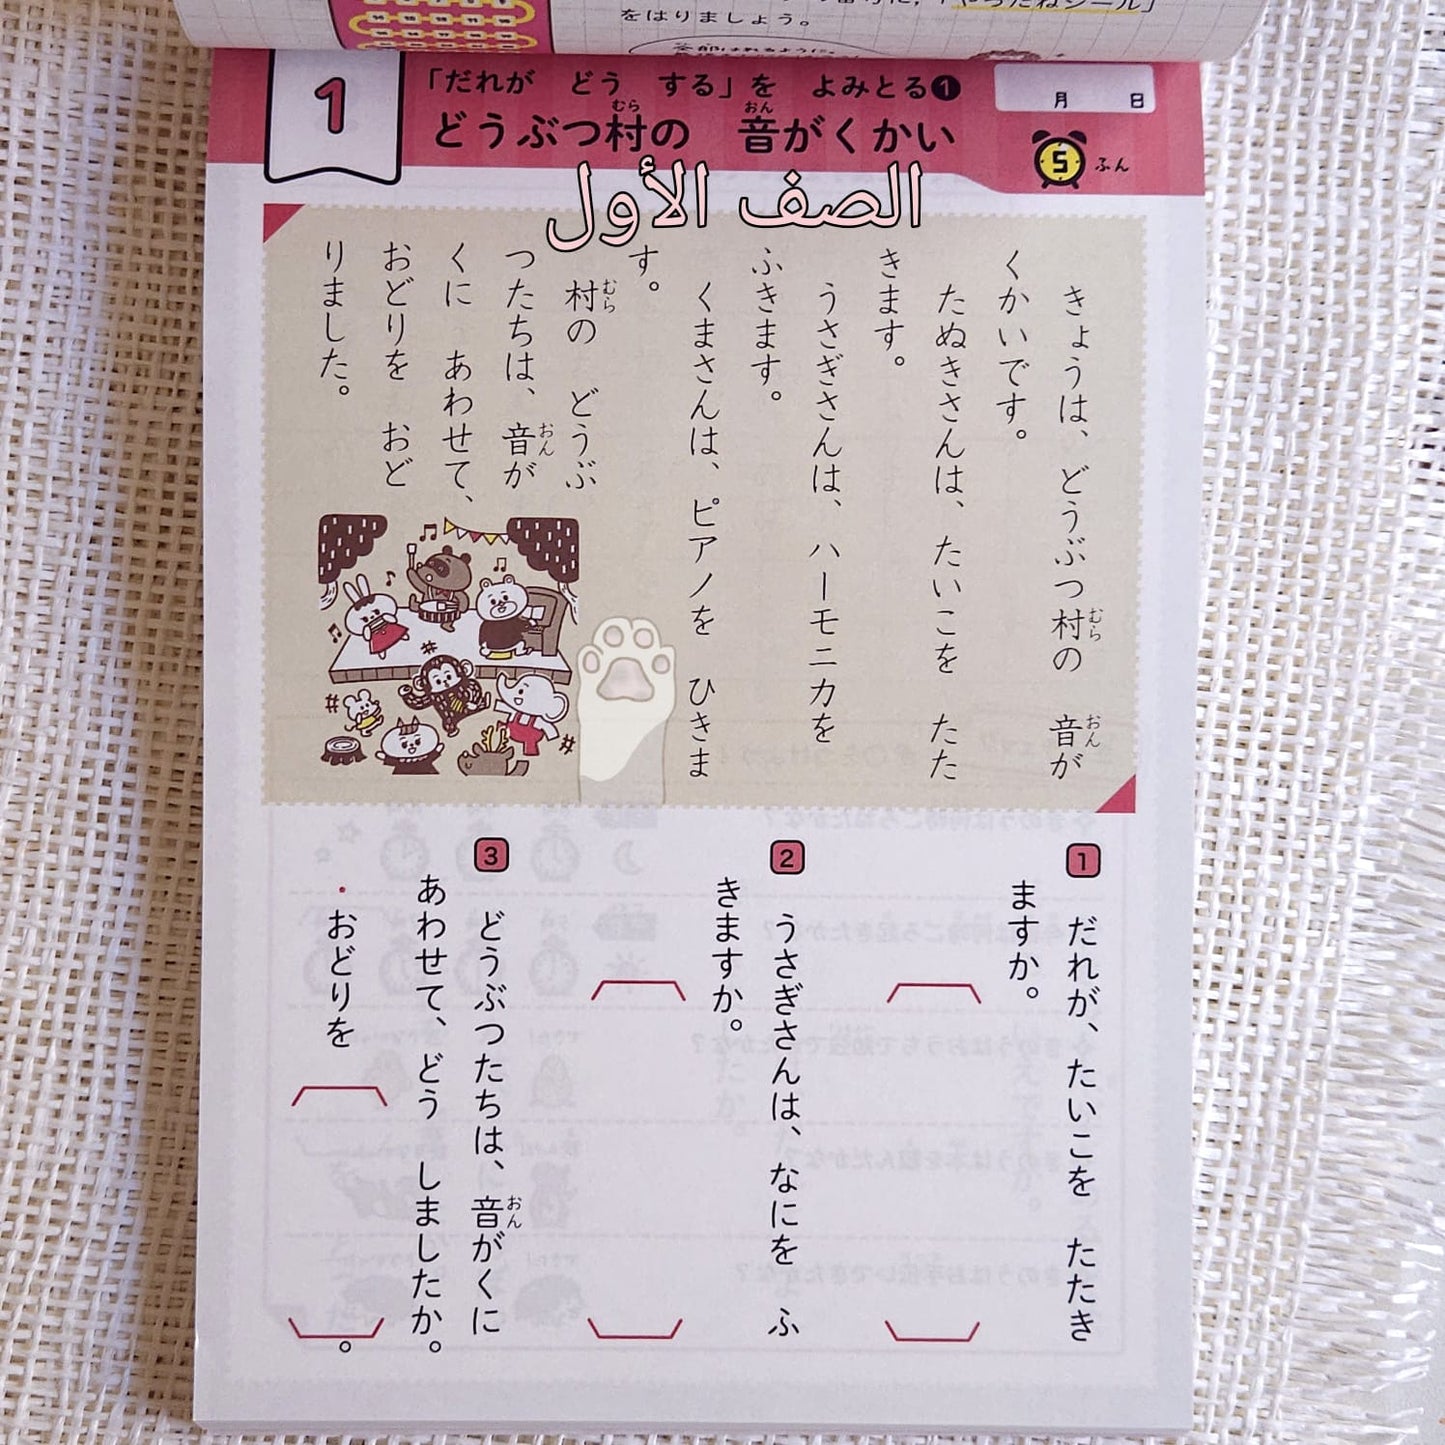 をはりましょう。
1
「だれが どう する」を よみとる❶
どうぶつ村の 音がくかい
むら
おん
月 日
5 ふん
الصف الأول
きょうは、どうぶつ村の 音が
むら
おん
くかいです。
たぬきさんは、たいこを たた
きます。
うさぎさんは、ハーモニカを
ふきます。
くまさんは、ピアノを ひきま
す。
村の どうぶ
むら
つたちは、音が
おん
くに あわせて、
おどりを おど
りました。
1
だれが、たいこを たたき
ますか。
2
うさぎさんは、なにを ふ
きますか。
3
どうぶつたちは、音がくに
おん
あわせて、どう しましたか。
・おどりを
。